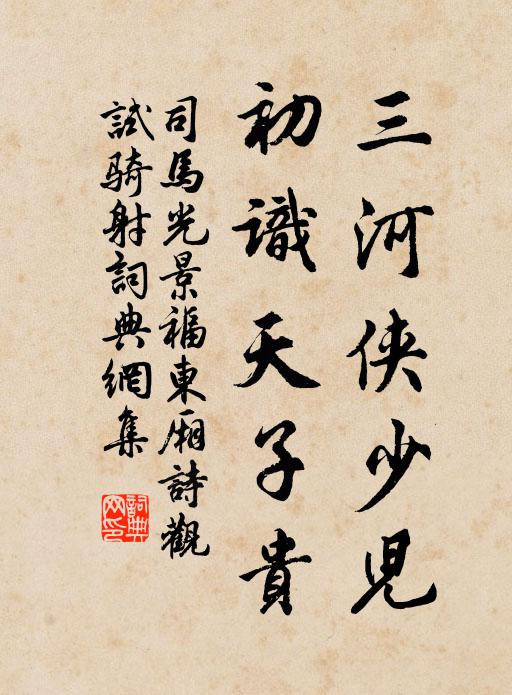 三河侠少児
初識天子貴
司馬光景福東廂詩觀
試騎射詞典網集
詞典網印